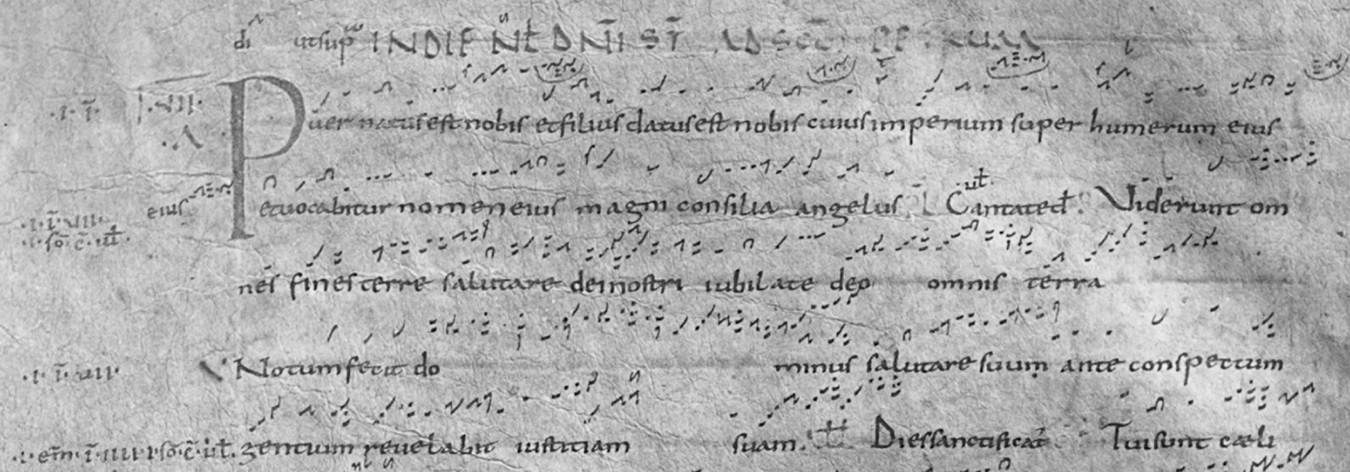 INDIE NAT DNI ST AD SCM PETRUM
Puer natus est nobis et filius datus est nobis cuius imperium super humerum eius
et vocabitur nomen eius magni consilia angelus Cantate d Viderunt om
nes fines terre salutare dei nostri iubilate deo omnis terra
Notum fecit do minus salutare suum ante conspectum
gentium revelabit iustitiam suam. Dies sanctificat Tui sunt caeli